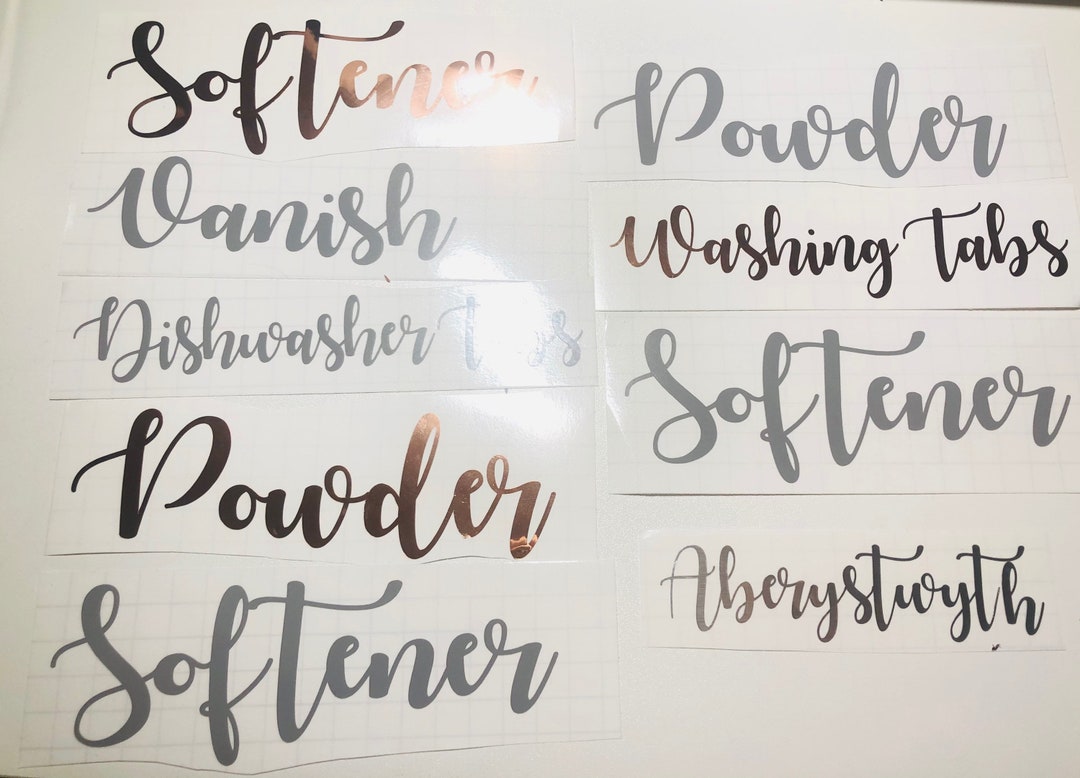 Softener
Vanish
Dishwasher tabs
Powder
Softener
Powder
Washing tabs
Softener
Aberystwyth